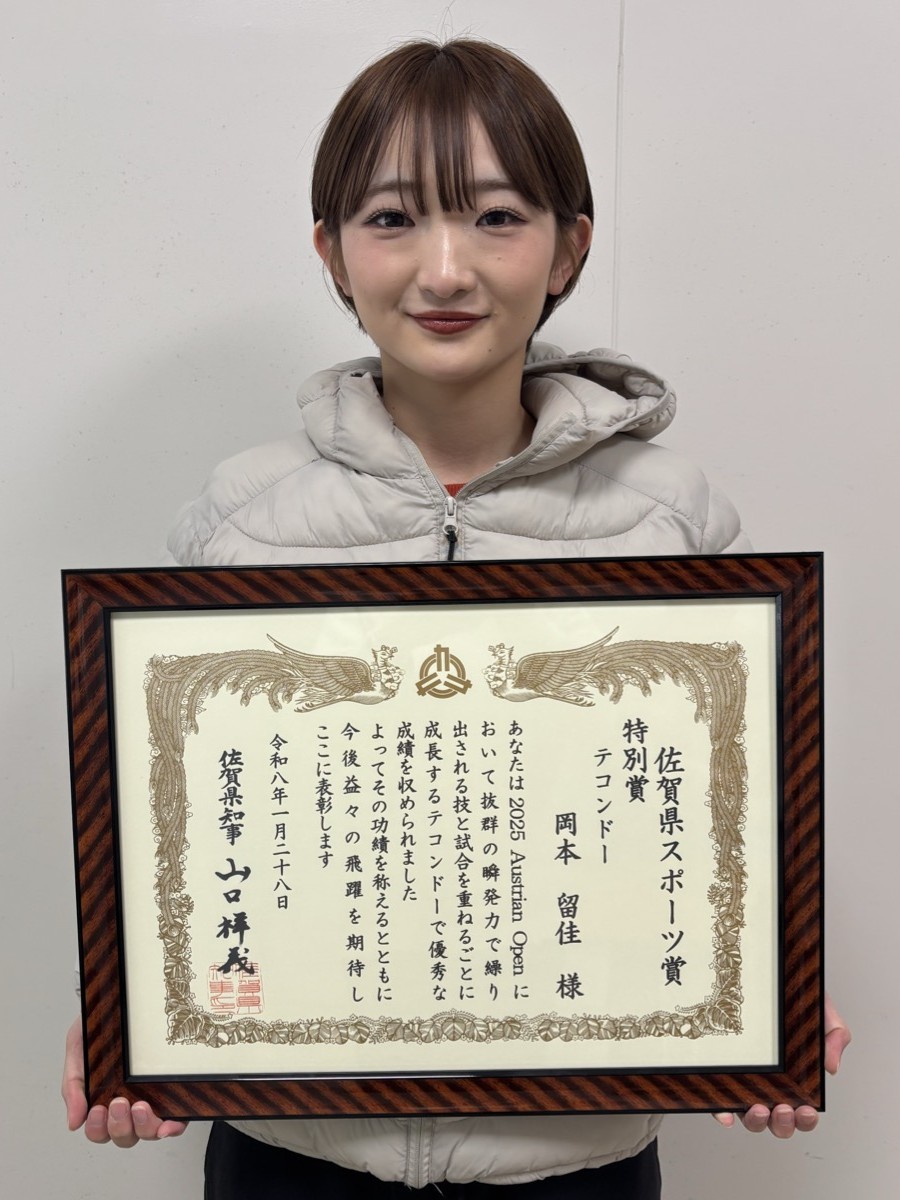 佐賀県スポーツ賞
特別賞
テコンドー
岡本 留佳 様
あなたは 2025 Austrian Open に
おいて抜群の瞬発力で繰り
出される技と試合を重ねるごとに
成長するテコンドーで優秀な
成績を収められました
よってその功績を称えるとともに
今後益々の飛躍を期待し
ここに表彰します
令和八年一月二十八日
佐賀県知事 山口祥義